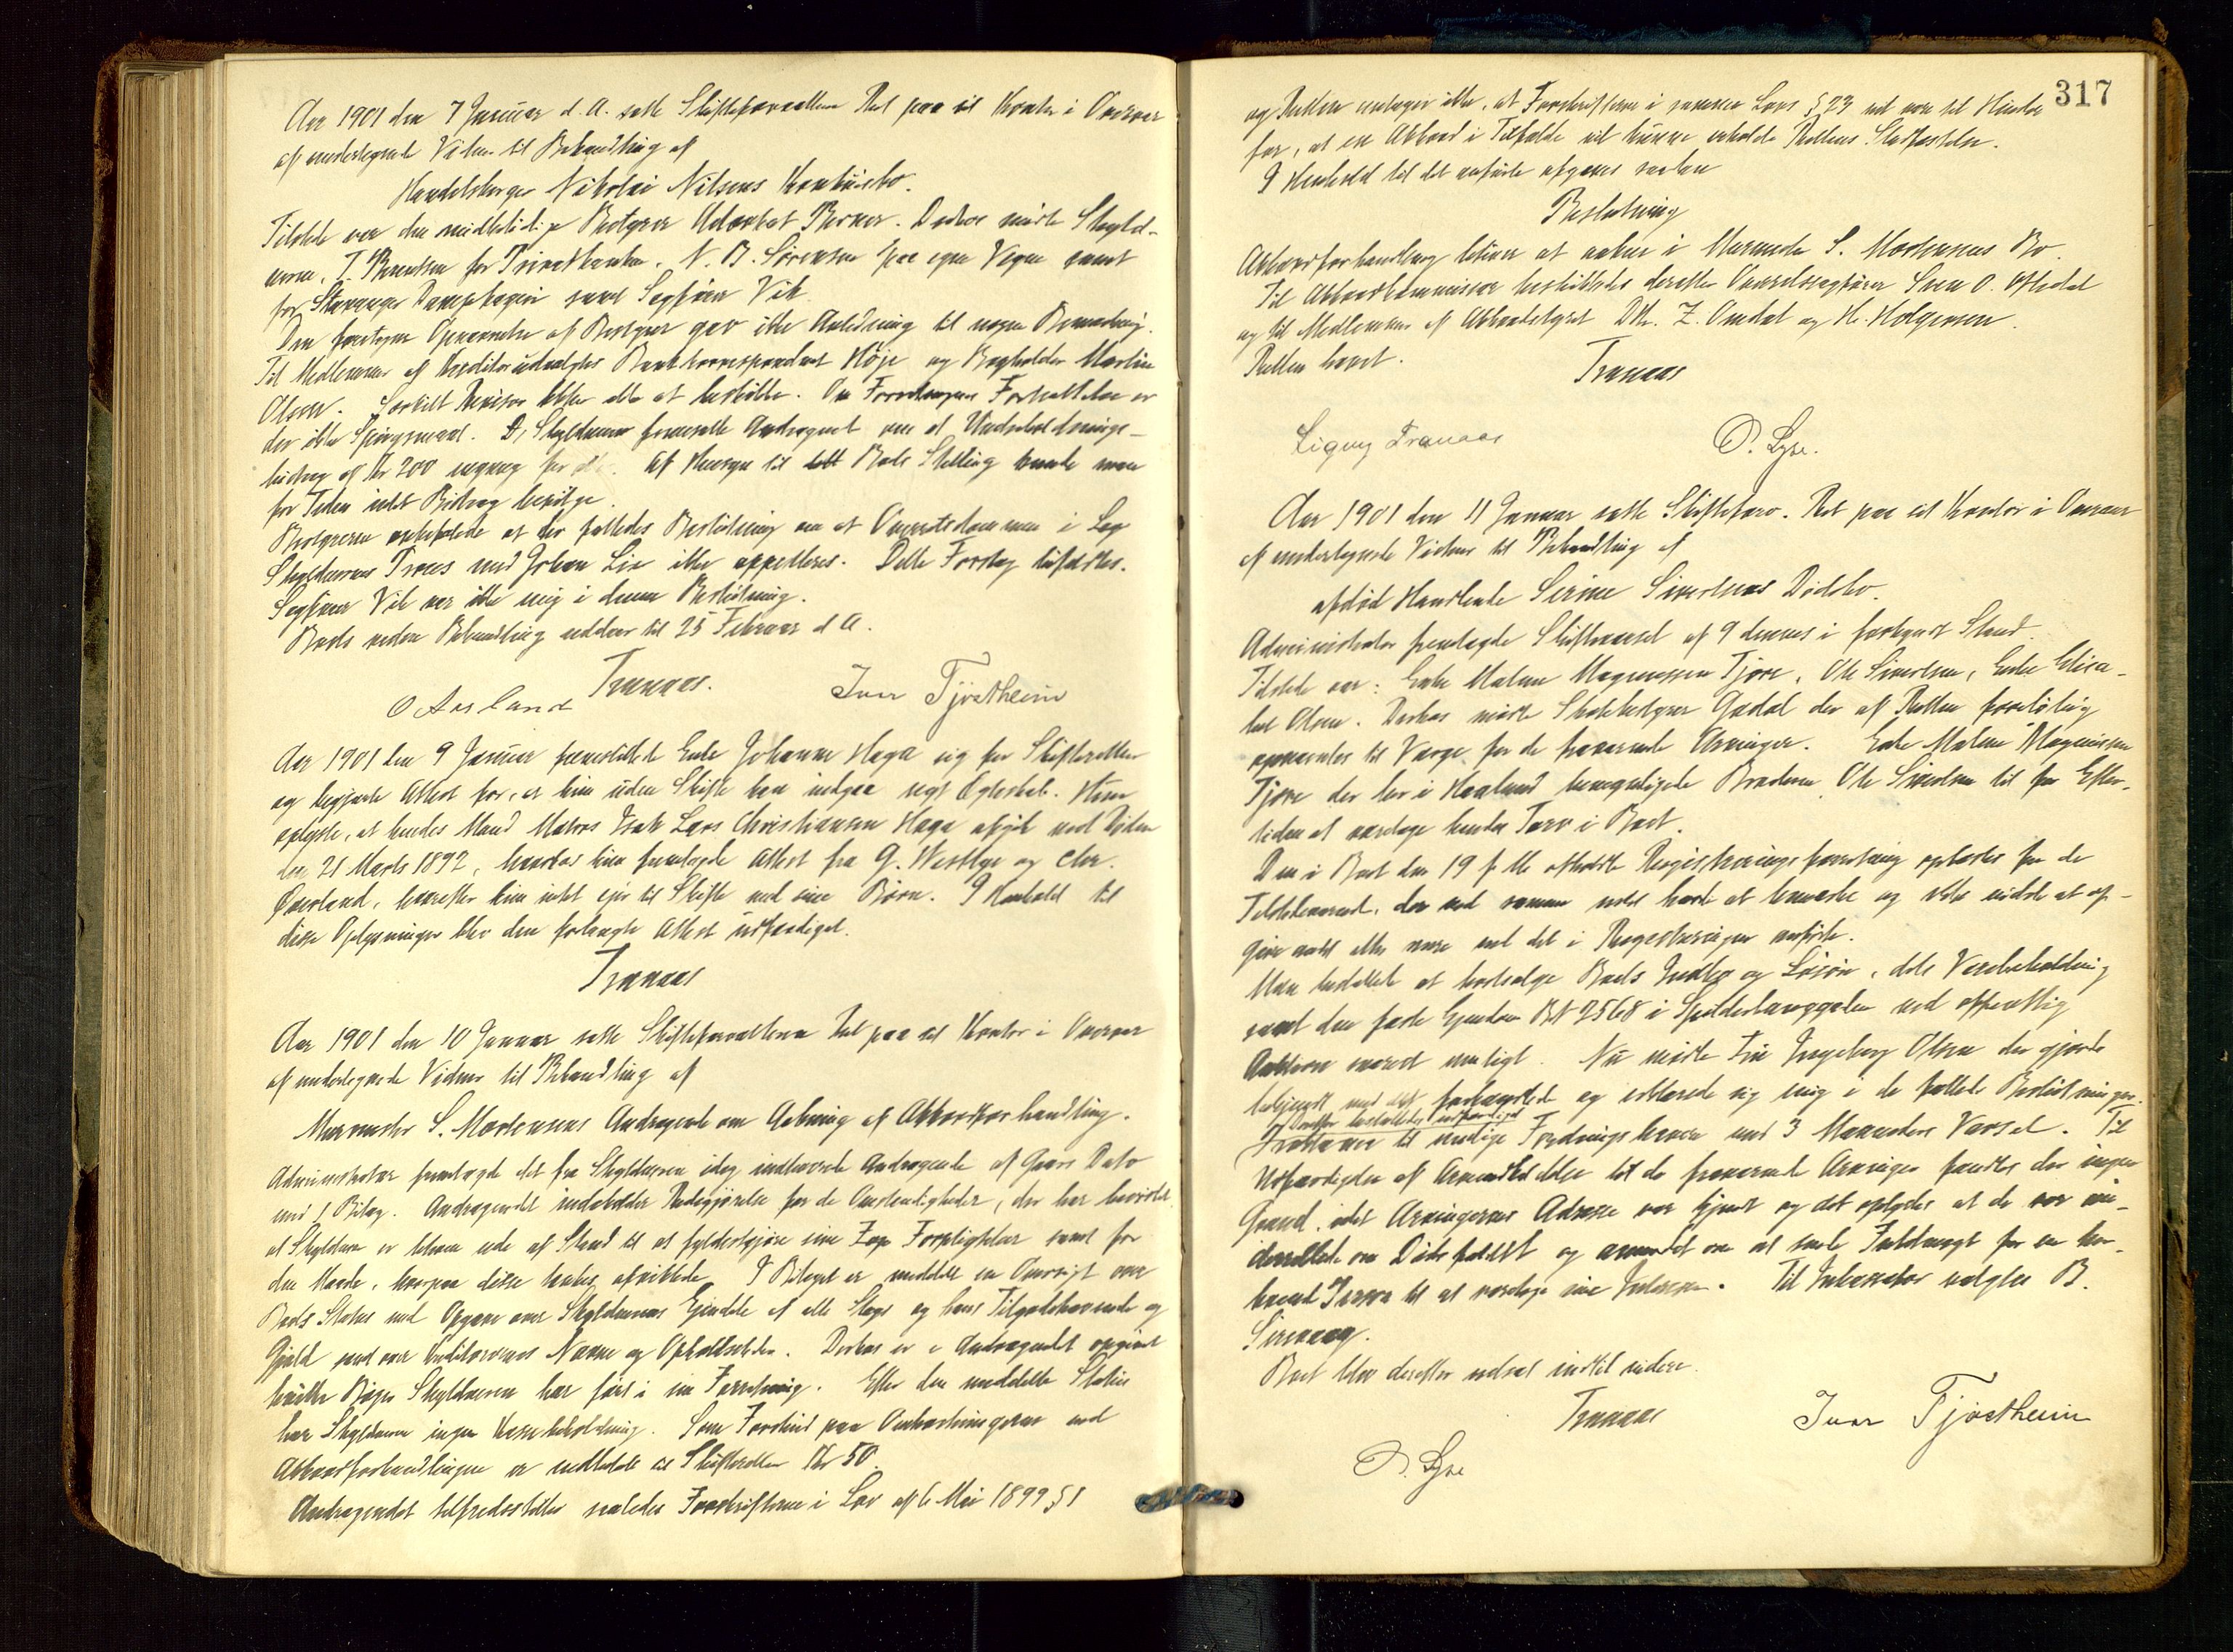 Aar 1901 den 7 Januar d. A. satte Skifteforvalteren Ret paa sit Kontor i Overvær
af undertegnede Vidner til Behandling af
Handelsborger Nikolai Nilsens Konkursbo.
Tilstede var den midlertidige Bestyrer Advokat Berner. Derhos mødte Skyld-
neren, T. Berentsen for Privatbanken. N. B. Sørensen paa egne Vegne samt
for Stavanger Dampkageri samt Sagfører Vik.
Den foretagne Opnævnelse af Bestyrer gav ikke Anledning til nogen Bemærkning.
Til Medlemmer af Kreditorudvalgtes Bankkorrespondent Høje og Bogholder Martin
Olsen. Særskilt Revisor ikke at beskikke. Om Forretningens Fortsættelse er
der ikke Spørgsmaal. Skyldneren fremsatte Andragende om et Underholdnings-
bidrag af Kr 200 engang for alle. Af Hensyn til Boets Stilling kunde man
for Tiden intet Bidrag bevilge.
Bestyreren anbefalede at der fattedes Beslutning om at Overretsdommen i Sag
Skyldnerens Proces mod Johan Lie ikke appelleres. Dette Forslag tiltraadtes.
Sagfører Vik var ikke enig i denne Beslutning.
Boets videre Behandling udstaar til 25 Februar d A.
Tranaas.
O Aarland Ivar Tjøstheim
Aar 1901 den 9 Januar fremstillede Enke Johanne Haga sig for Skifteretten
og begjærte Attest for, at hun uden Skifte kan indgaa nyt Ægteskab. Hun
oplyste, at hendes Mand Matros Isak Lars Christiansen Haga afgik ved Døden
den 21 Marts 1892, hvorhos hun fremlagde Attest fra G. Westlye og Chr.
Øverland, hvorefter hun intet ejer til Skifte med sine Børn. I Henhold til
disse Oplysninger blev den forlangte Attest udfærdiget.
Tranaas
Aar 1901 den 10 Januar satte Skifteforvalteren Ret paa sit Kontor i Overvær
af undertegnede Vidner til Behandling af
Murmester S. Mortensens Andragende om Aabning af Akkordforhandling.
Administrator fremlagde det fra Skyldneren idag indkomne Andragende af Gaars Dato
med 1 Bilag. Andragendet indeholder Redegjørelse for de Omstændigheder, der har bevirket
at Skyldneren er bleven ude af Stand til at fyldestgjøre sine Forpligtelser samt for
den Maade, hvorpaa disse tænkes afviklede. I Bilaget er meddelt en Oversigt over
Boets Status med Opgave over Skyldnerens Eiendele af alle Slags og hans Tilgodehavende og
Gjæld samt over Kreditorernes Navne og Opholdssteder. Derhos er i Andragendet opgivet
hvilke Bøger Skyldneren har ført i sin Forretning. Efter den meddelte Status
har Skyldneren ingen Kassebeholdning. Som Forskud paa Omkostningerne ved
Akkordforhandlingen er indbetalt til Skifteretten Kr 50.
Andragendet tilfredsstiller saaledes Forskrifterne i Lov af 6 Mai 1899 § 1
317
og Retten antager ikke, at Forskrifterne i samme Lovs § 23 vil være til Hinder
for, at en Akkord i Tilfælde vil kunne erholde Rettens Stadfæstelse.
I Henhold til det anførte afgaves saadan
Beslutning
Akkordforhandling bliver at aabne i Murmester S. Mortensens Bo.
Til Akkordkommissær beskikkedes derefter Overretssagfører Sven O. Oftedal
og til Medlemmer af Akkordstyret DHr. Z. Omdal og H. Holgersen.
Retten hævet.
Tranaas
Signy Tranaas P. Lye.
Aar 1901 den 11 Januar satte Skifteforv. Ret paa sit Kontor i Overvær
af undertegnede Vidner til Behandling af
afdød Handlende Serine Sivertsens Dødsbo.
Administrator fremlagde Skiftevarsel af 9 dennes i forkyndt Stand.
Tilstede var: Enke Malene Magnussen Tjore, Ole Sivertsen, Enke Elisa-
bet Olsen. Derhos mødte Skattebestyrer Gadal der af Retten foreløbig
opnævntes til Værge for de fraværende Arvinger. Enke Malene Magnussen
Tjore der bor i Haaland bemyndigede Broderen Ole Sivertsen til for Efter-
tiden at varetage hendes Tarv i Boet.
Den i Boet den 19 f. M. afholdte Registreringsforretning oplæstes for de
Tilstedeværende, der ved samme intet havde at bemærke og ikke vidste at op-
give andet eller mere end det i Registreringen anførte.
Man besluttet at bortsælge Boets Indbo og Løsøre, dets Varebeholdning
samt den faste Ejendom No 2568 i Spilderhauggaden ved offentlig
Auktion snarest muligt. Nu mødte Fru Ingeborg Olsen der gjorde
bekjendt med det foretagede og erklærede sig enig i de fattede Beslutninger.
Derefter besluttedes udfærdiget
Proklama til mulige Fordringshavere med 3 Maaneders Varsel. Til
Udfærdigelse af Arveindkaldelse til de fraværende Arvinger fandtes der ingen
Grund, idet Arvingernes Adresse var kjendt og det oplystes at de var un-
derrettede om Dødsfaldet og anmodet om at sende Fuldmagt for en her-
boende Person til at varetage sine Interesser. Til Inkassator valgtes B.
Sirevaag.
Boet blev derefter udsat indtil videre.
Tranaas Ivar Tjøstheim
P. Lye